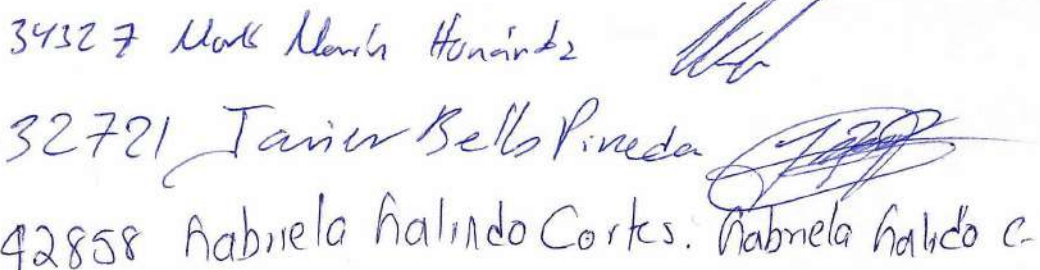 34327 Mark Marín Hernández
32721 Javier Bello Pineda
42858 Gabriela Galindo Cortes. Gabriela Galido C-